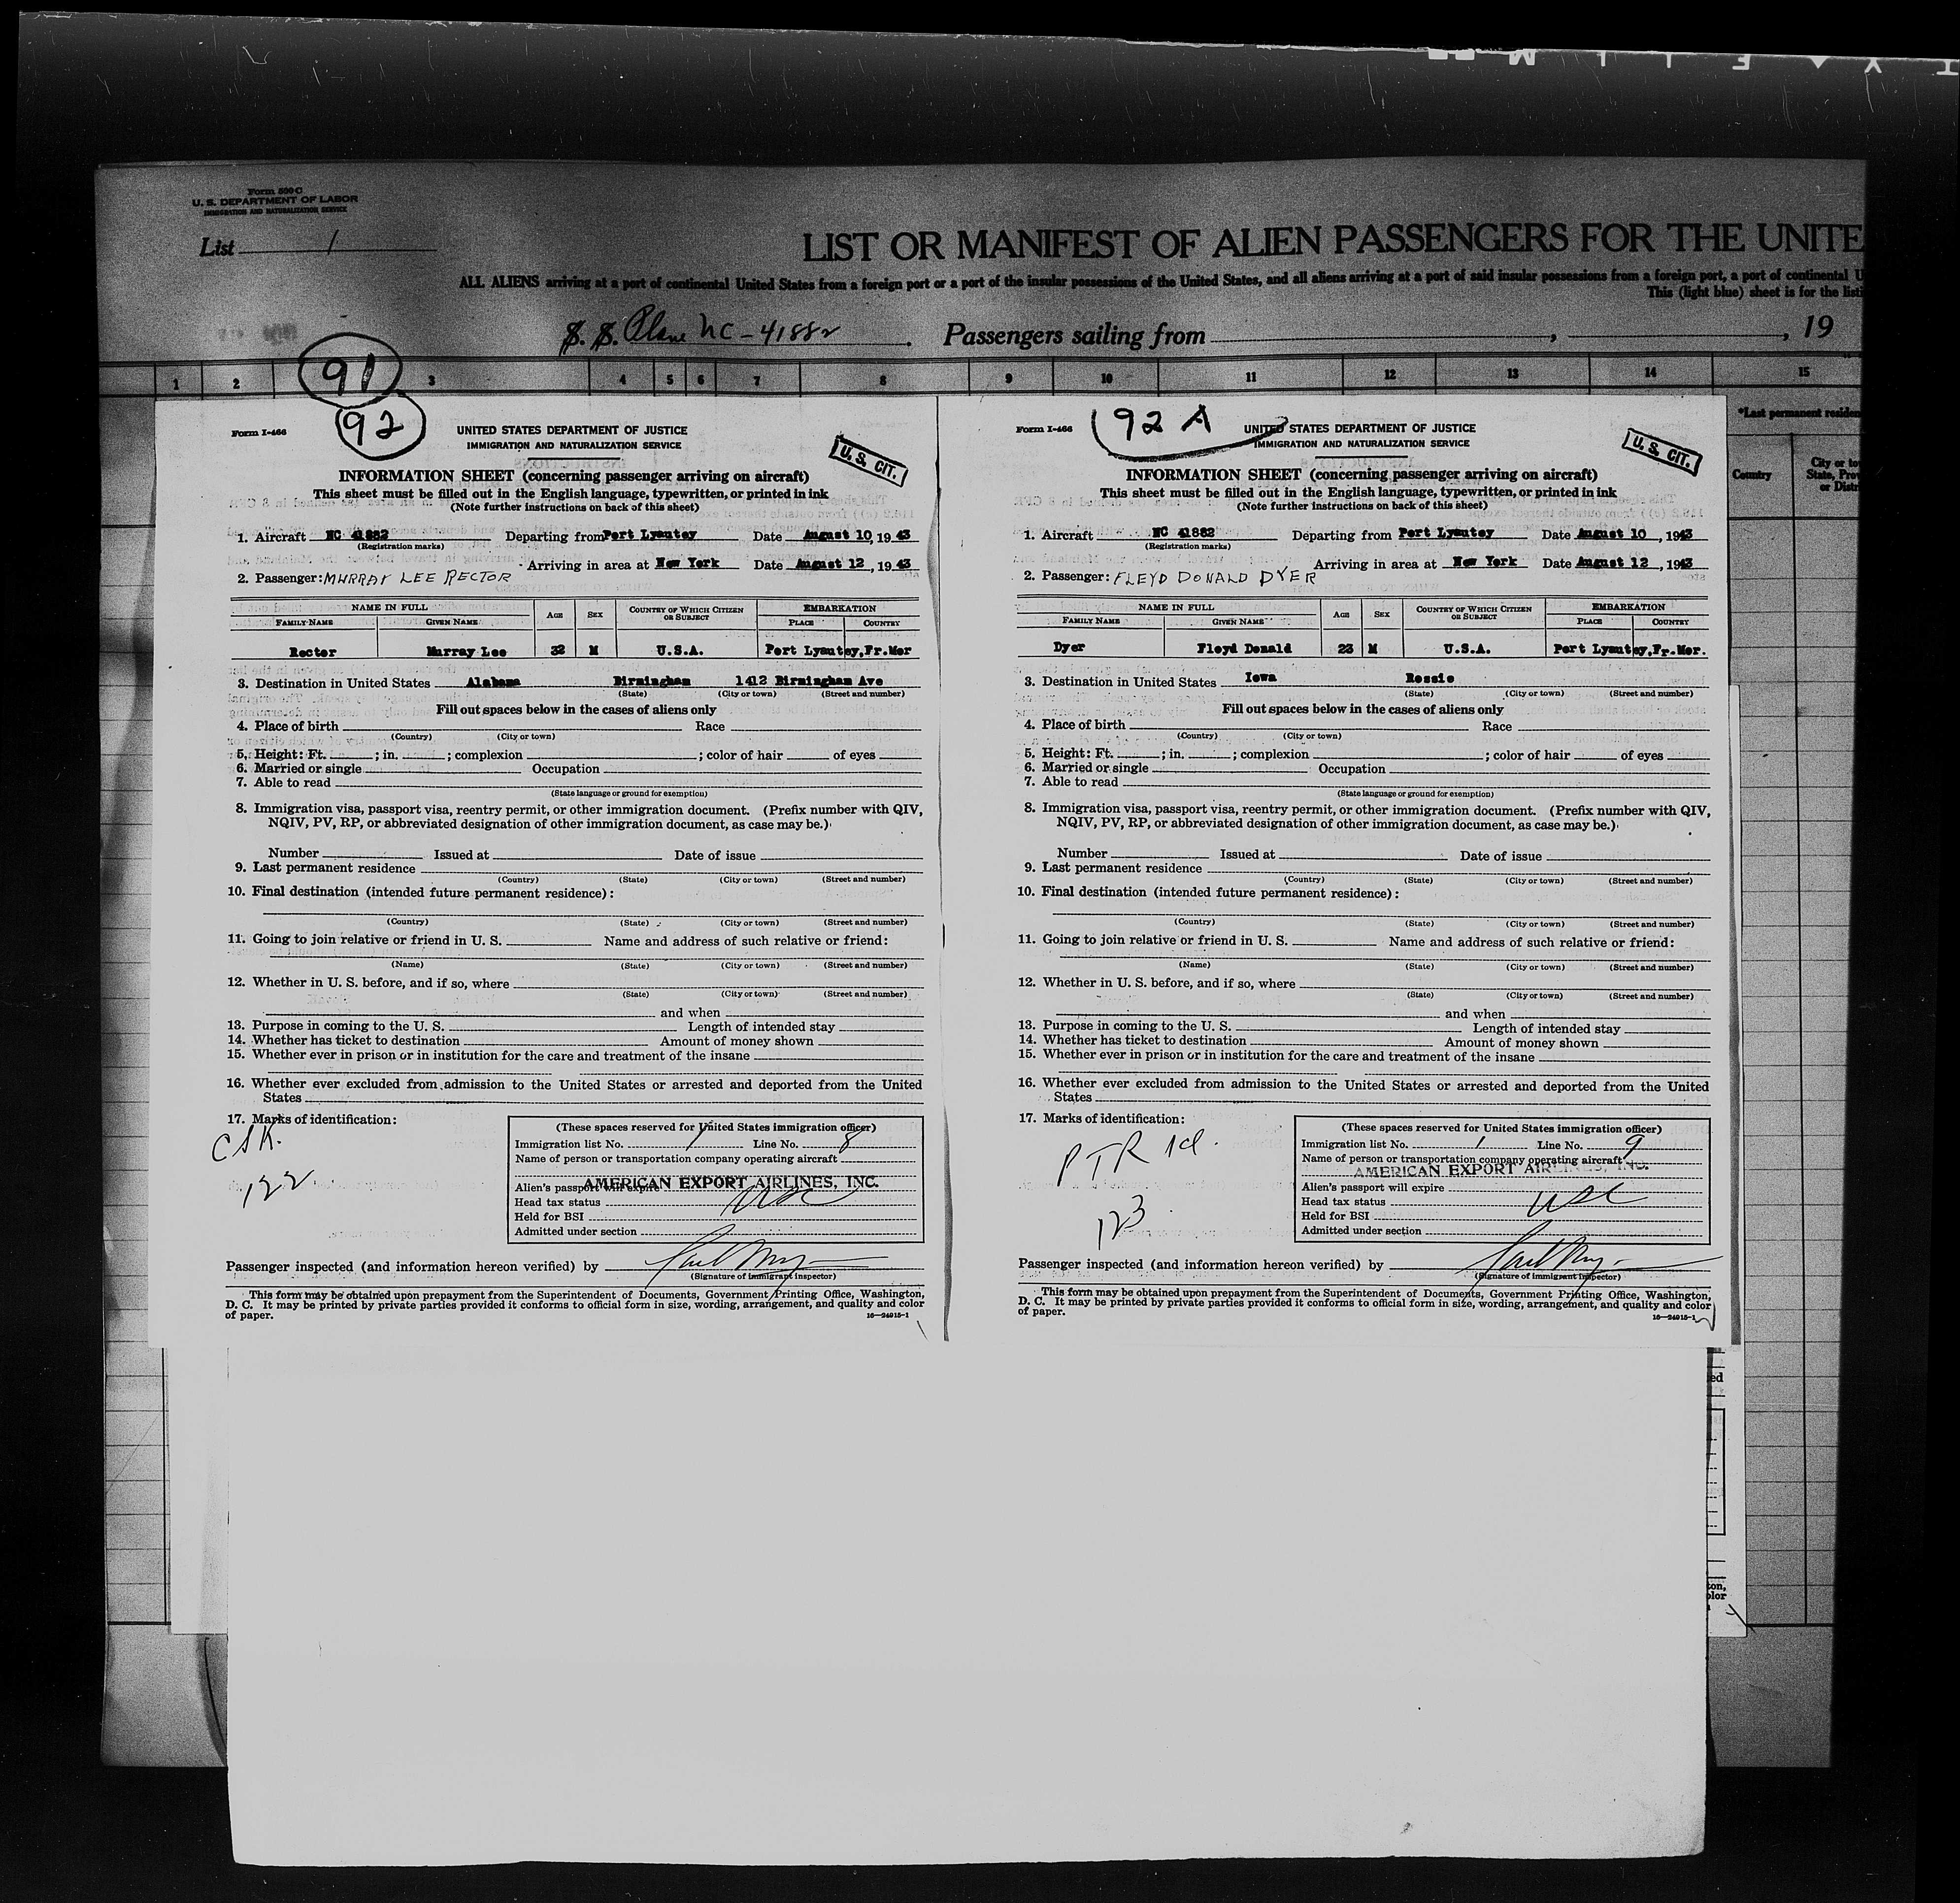 Form 500-C
U. S. DEPARTMENT OF LABOR
IMMIGRATION AND NATURALIZATION SERVICE
List 1
LIST OR MANIFEST OF ALIEN PASSENGERS FOR THE UNITE
ALL ALIENS arriving at a port of continental United States from a foreign port or a port of the insular possessions of the United States, and all aliens arriving at a port of said insular possessions from a foreign port, a port of continental U
This (light blue) sheet is for the listi
S. S. Plane NC-41882. Passengers sailing from , , 19
1 2 3 4 5 6 7 8 9 10 11 12 13 14 15
91
*Last permanent residen
Country
City or to
State, Prov
or Distr
92
Form I-466
UNITED STATES DEPARTMENT OF JUSTICE
IMMIGRATION AND NATURALIZATION SERVICE
U. S. CIT.
INFORMATION SHEET (concerning passenger arriving on aircraft)
This sheet must be filled out in the English language, typewritten, or printed in ink
(Note further instructions on back of this sheet)
1. Aircraft NC 41882 Departing from Port Lyautey Date August 10, 1943
(Registration marks)
Arriving in area at New York Date August 12, 1943
2. Passenger: MURRAY LEE RECTOR
NAME IN FULL AGE SEX COUNTRY OF WHICH CITIZEN OR SUBJECT EMBARKATION
FAMILY NAME GIVEN NAME PLACE COUNTRY
Rector Murray Lee 32 M U.S.A. Port Lyautey,Fr.Mor
3. Destination in United States Alabama Birmingham 1412 Birmingham Ave
(State) (City or town) (Street and number)
Fill out spaces below in the cases of aliens only
4. Place of birth Race
(Country) (City or town)
5. Height: Ft. ; in. ; complexion ; color of hair of eyes
6. Married or single Occupation
7. Able to read
(State language or ground for exemption)
8. Immigration visa, passport visa, reentry permit, or other immigration document. (Prefix number with QIV,
NQIV, PV, RP, or abbreviated designation of other immigration document, as case may be.)
Number Issued at Date of issue
9. Last permanent residence
(Country) (State) (City or town) (Street and number)
10. Final destination (intended future permanent residence):
(Country) (State) (City or town) (Street and number)
11. Going to join relative or friend in U. S. Name and address of such relative or friend:
(Name) (State) (City or town) (Street and number)
12. Whether in U. S. before, and if so, where
(State) (City or town) (Street and number)
and when
13. Purpose in coming to the U. S. Length of intended stay
14. Whether has ticket to destination Amount of money shown
15. Whether ever in prison or in institution for the care and treatment of the insane
16. Whether ever excluded from admission to the United States or arrested and deported from the United
States
17. Marks of identification:
CSK.
122.
(These spaces reserved for United States immigration officer)
Immigration list No. 1 Line No. 8
Name of person or transportation company operating aircraft
AMERICAN EXPORT AIRLINES, INC.
Alien's passport will expire
Head tax status USC
Held for BSI
Admitted under section
Passenger inspected (and information hereon verified) by
(Signature of immigrant inspector)
This form may be obtained upon prepayment from the Superintendent of Documents, Government Printing Office, Washington,
D. C. It may be printed by private parties provided it conforms to official form in size, wording, arrangement, and quality and color
of paper.
16—24015-1
92 A
Form I-466
UNITED STATES DEPARTMENT OF JUSTICE
IMMIGRATION AND NATURALIZATION SERVICE
U. S. CIT.
INFORMATION SHEET (concerning passenger arriving on aircraft)
This sheet must be filled out in the English language, typewritten, or printed in ink
(Note further instructions on back of this sheet)
1. Aircraft NC 41882 Departing from Port Lyautey Date August 10, 1943
(Registration marks)
Arriving in area at New York Date August 12, 1943
2. Passenger: FLEYD DONALD DYER
NAME IN FULL AGE SEX COUNTRY OF WHICH CITIZEN OR SUBJECT EMBARKATION
FAMILY NAME GIVEN NAME PLACE COUNTRY
Dyer Floyd Donald 23 M U.S.A. Port Lyautey,Fr.Mor.
3. Destination in United States Iowa Rossie
(State) (City or town) (Street and number)
Fill out spaces below in the cases of aliens only
4. Place of birth Race
(Country) (City or town)
5. Height: Ft. ; in. ; complexion ; color of hair of eyes
6. Married or single Occupation
7. Able to read
(State language or ground for exemption)
8. Immigration visa, passport visa, reentry permit, or other immigration document. (Prefix number with QIV,
NQIV, PV, RP, or abbreviated designation of other immigration document, as case may be.)
Number Issued at Date of issue
9. Last permanent residence
(Country) (State) (City or town) (Street and number)
10. Final destination (intended future permanent residence):
(Country) (State) (City or town) (Street and number)
11. Going to join relative or friend in U. S. Name and address of such relative or friend:
(Name) (State) (City or town) (Street and number)
12. Whether in U. S. before, and if so, where
(State) (City or town) (Street and number)
and when
13. Purpose in coming to the U. S. Length of intended stay
14. Whether has ticket to destination Amount of money shown
15. Whether ever in prison or in institution for the care and treatment of the insane
16. Whether ever excluded from admission to the United States or arrested and deported from the United
States
17. Marks of identification:
PTR
123
(These spaces reserved for United States immigration officer)
Immigration list No. 1 Line No. 9
Name of person or transportation company operating aircraft
AMERICAN EXPORT AIRLINES, INC.
Alien's passport will expire
Head tax status USC
Held for BSI
Admitted under section
Passenger inspected (and information hereon verified) by
(Signature of immigrant inspector)
This form may be obtained upon prepayment from the Superintendent of Documents, Government Printing Office, Washington,
D. C. It may be printed by private parties provided it conforms to official form in size, wording, arrangement, and quality and color
of paper.
16—24015-1